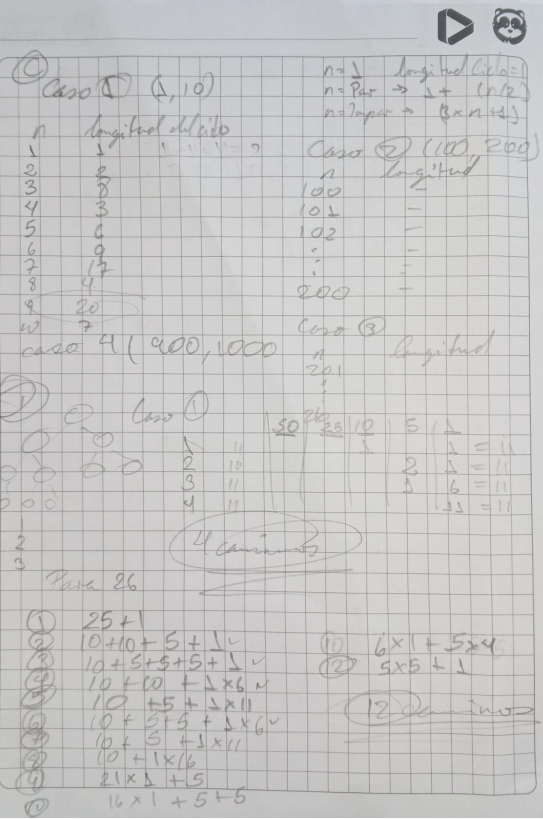 C
Caso 1 (1,10)
n=1 longitud Ciclo=1
n=Par → 1+ (n/2)
n=Impar → (3xn+1)
n longitud del ciclo
1 1
2 2
3 8
4 3
5 6
6 9
7 17
8 4
9 20
10 7
Caso 2 (100, 200)
n longitud
100 -
101 -
102 -
:
:
200 -
Caso 3
n longitud
201
:
caso 4 (900,1000
Caso 1
50 25 10 5 1
1 11 1 1 = 11
2 11 2 1 = 11
3 11 1 6 = 11
4 11 11 = 11
4 caminos
1
2
3
Para 26
1 25+1
2 10+10+5+1
3 10+5+5+5+1
4 10+10+1x6
5 10+5+1x11
6 10+5+5+1x6
7 10+5+1x11
8 10+1x16
9 21x1+5
10 16x1+5+5
11 6x1+5x4
12 5x5+1
12 caminos